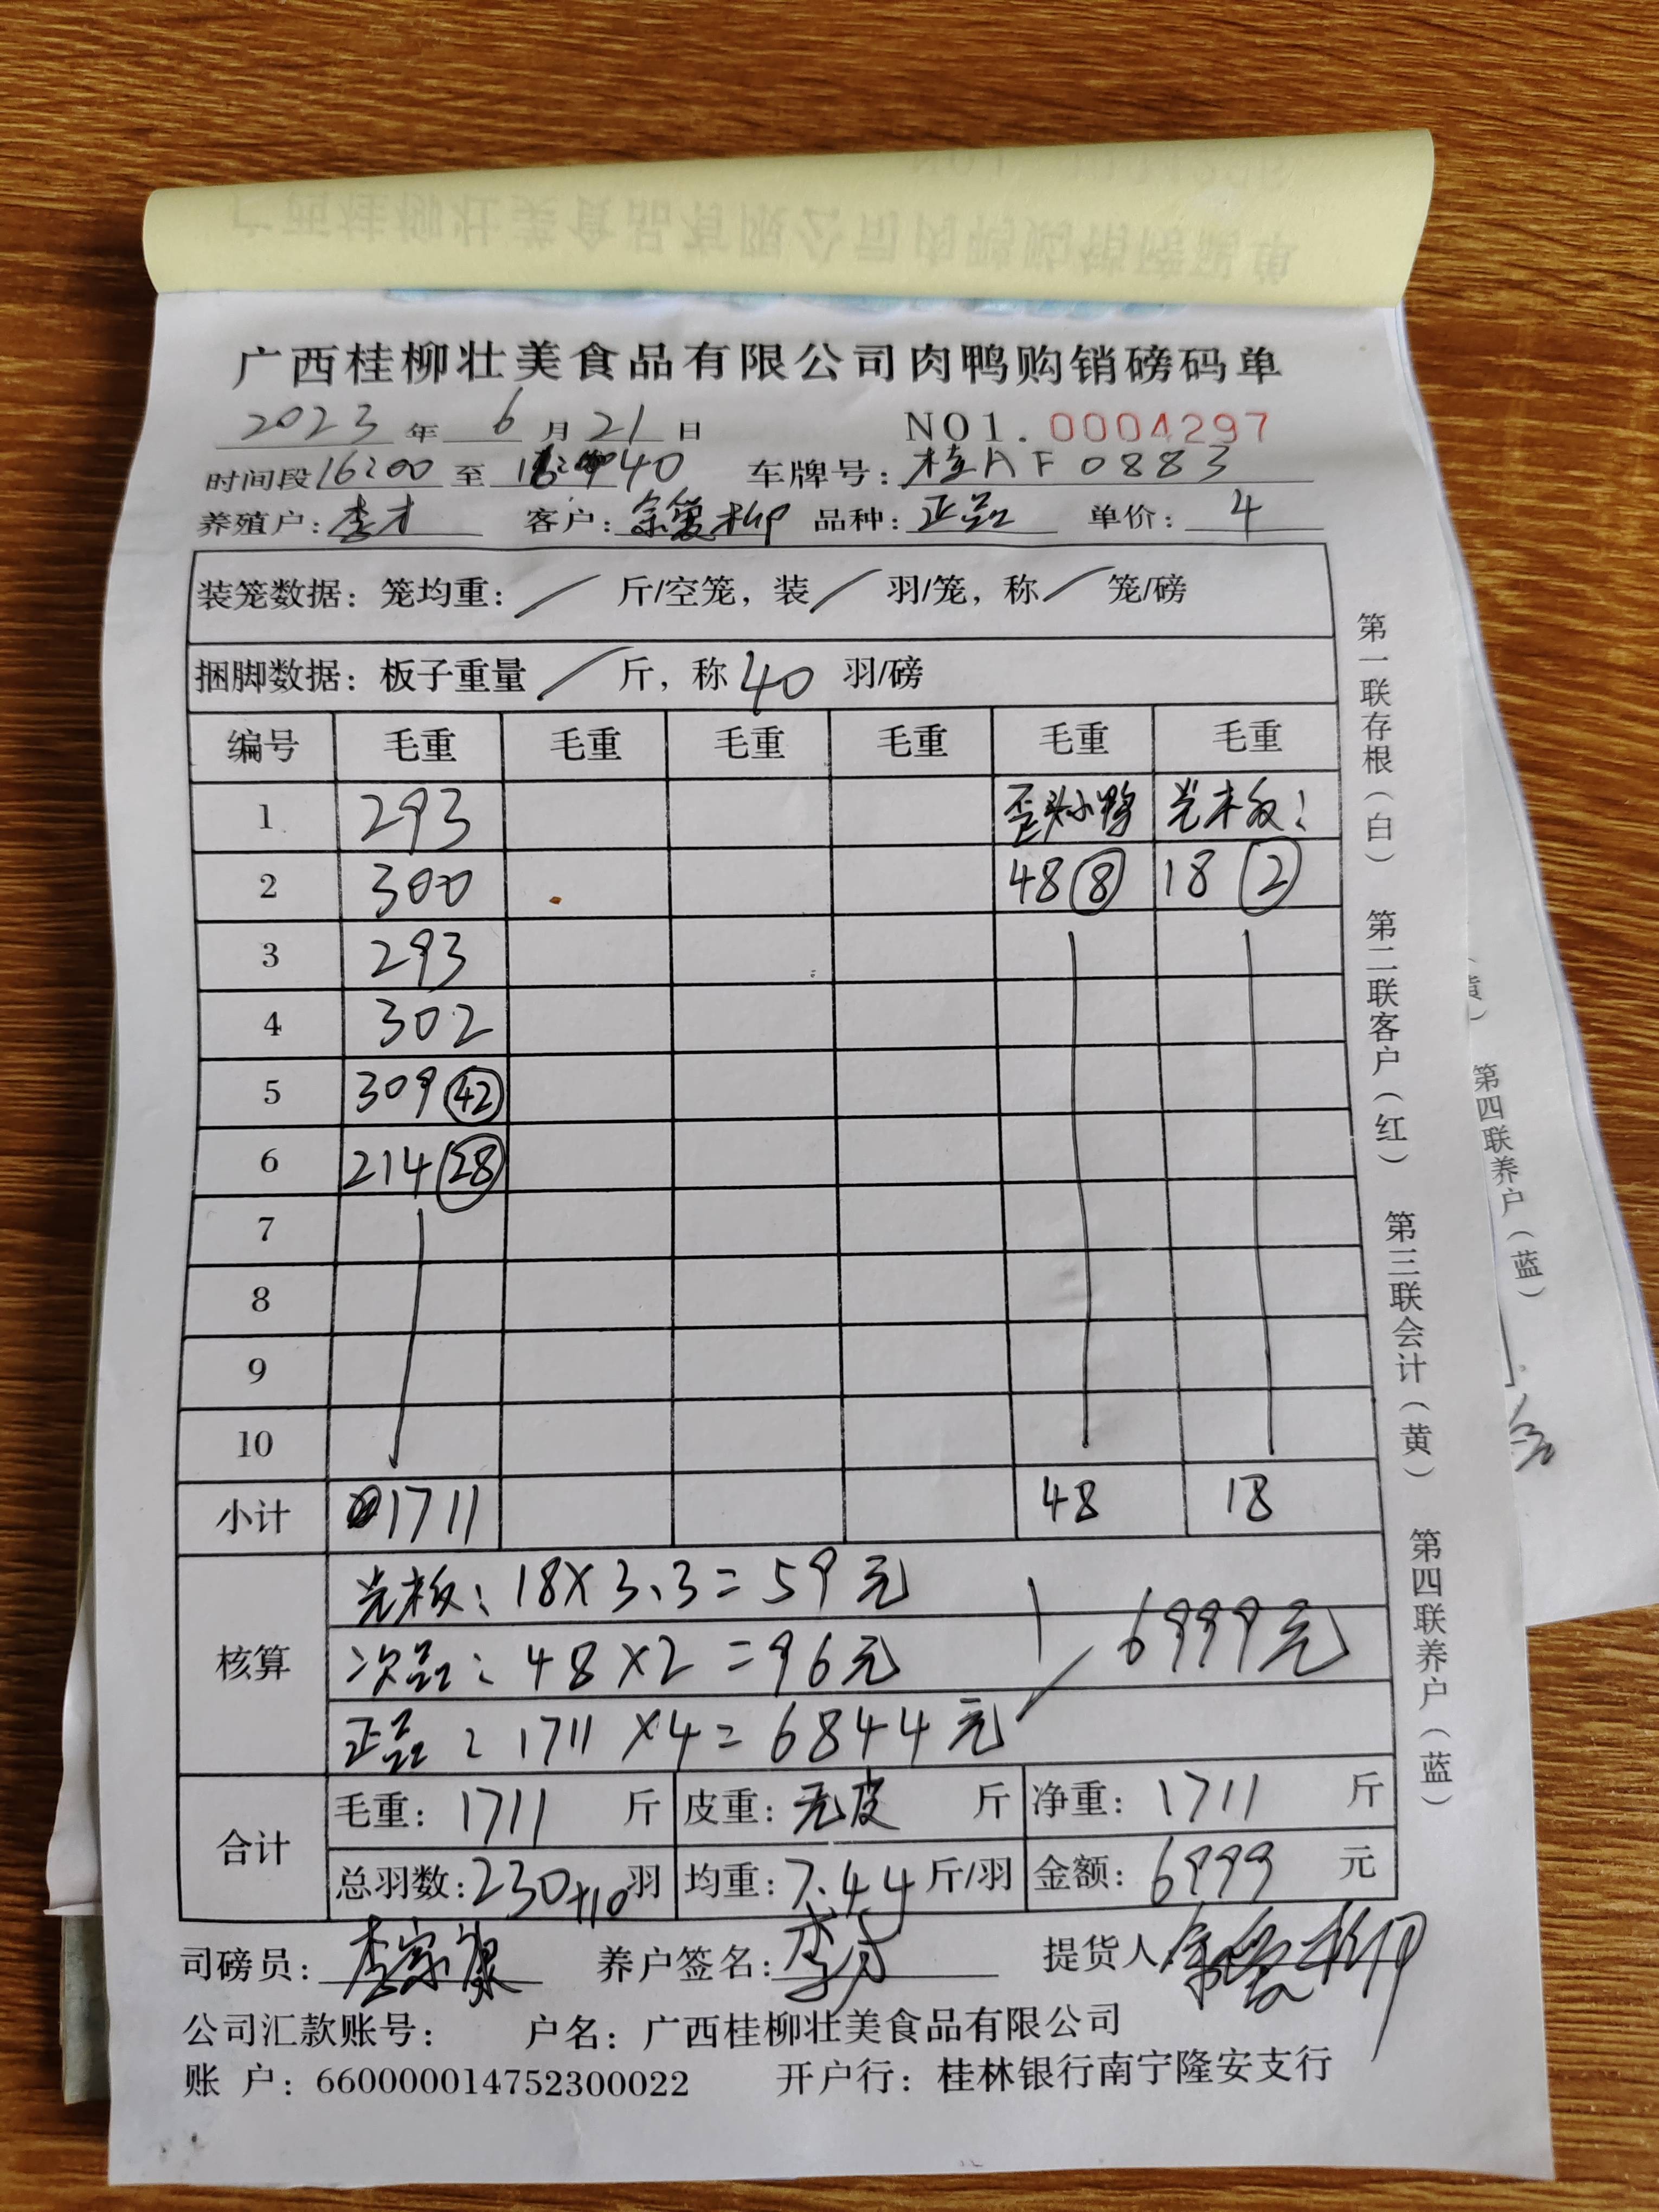 广西桂柳壮美食品有限公司肉鸭购销磅码单
2023年 6月21日 NO1.0004297
时间段16:00至 40 车牌号:桂AF0883
养殖户:李才 客户: 品种:正品 单价:4
装笼数据:笼均重:/ 斤/空笼,装/ 羽/笼,称/ 笼/磅
捆脚数据:板子重量 / 斤,称40 羽/磅
编号 毛重 毛重 毛重 毛重 毛重 毛重
1 293 歪头小鸭 光板:
2 300 48⑧ 18②
3 293
4 302
5 309㊷
6 214㉘
7
8
9
10
小计 1711 48 18
核算 光板:18×3.3=59元
次品:48×2=96元 6999元
正品:1711×4=6844元
合计 毛重:1711 斤 皮重:无皮 斤 净重:1711 斤
总羽数:230+10羽 均重:7.44斤/羽 金额:6999 元
司磅员: 养户签名:李才 提货人:
公司汇款账号: 户名:广西桂柳壮美食品有限公司
账 户:660000014752300022 开户行:桂林银行南宁隆安支行
第一联存根(白) 第二联客户(红) 第三联会计(黄) 第四联养户(蓝)
黄) 第四联养户(蓝)